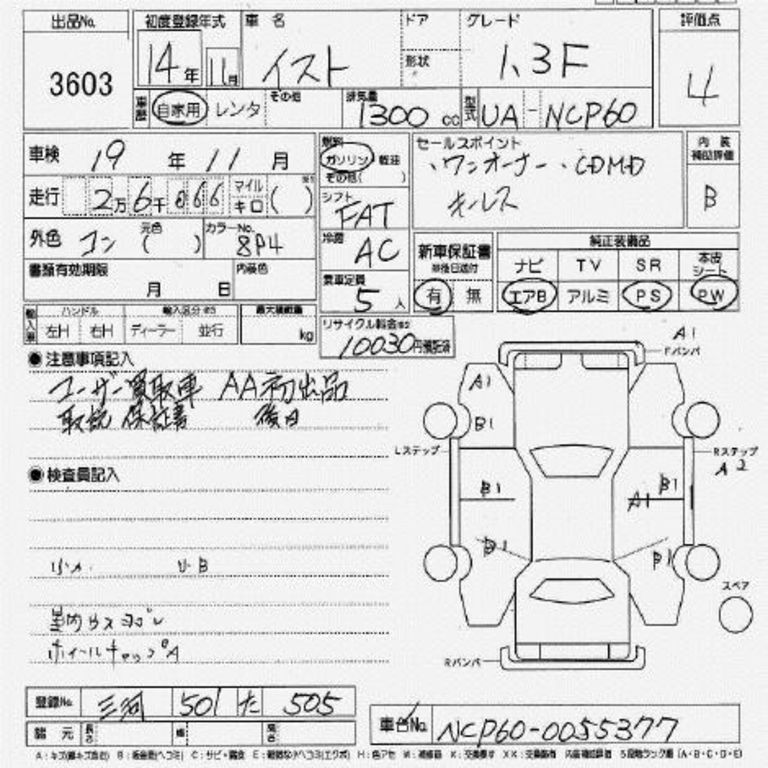 出品No. 初度登録年式 車名 ドア グレード 評価点
3603 14年 11月 イスト 形状 1.3F 4
車歴 自家用 レンタ その他 排気量 1300cc 型式 UA-NCP60
車検 19年 11月 燃料 ガソリン・軽油 その他( ) セールスポイント 内装補助評価
・ワンオーナー ・CDMD B
走行 2万6千066 マイル キロ ( ) シフト FAT キーレス
外色 コン 元色( ) カラーNo. 8P4 冷房 AC 新車保証書 ※後日送付 純正装備品
ナビ TV SR 本皮シート
書類有効期限 月 日 内装色 乗車定員 5人 有 無 エアB アルミ PS PW
輸入車 ハンドル 左H 右H 輸入区分 ディーラー 並行 最大積載量 kg リサイクル料金 10030円預託済
●注意事項記入
ユーザー買取車 AA初出品
取説 保証書 後日
●検査員記入
小A 小B
室内ウスヨゴレ
ホイールキャップA
A1
Fバンパ
A1
B1
Lステップ Rステップ
A2
B1 A1 B1
B1 B1
スペア
Rバンパ
登録No. 三河 501 た 505
諸元 長さ 幅 高さ 車台No. NCP60-0055377